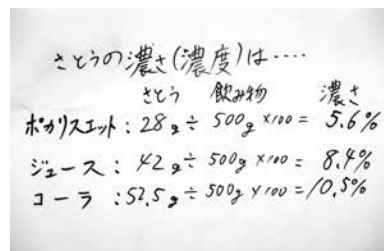 さとうの濃さ(濃度)は‥‥
さとう 飲み物 濃さ
ポカリスエット:28g÷500g×100=5.6%
ジュース:42g÷500g×100=8.4%
コーラ:52.5g÷500g×100=10.5%